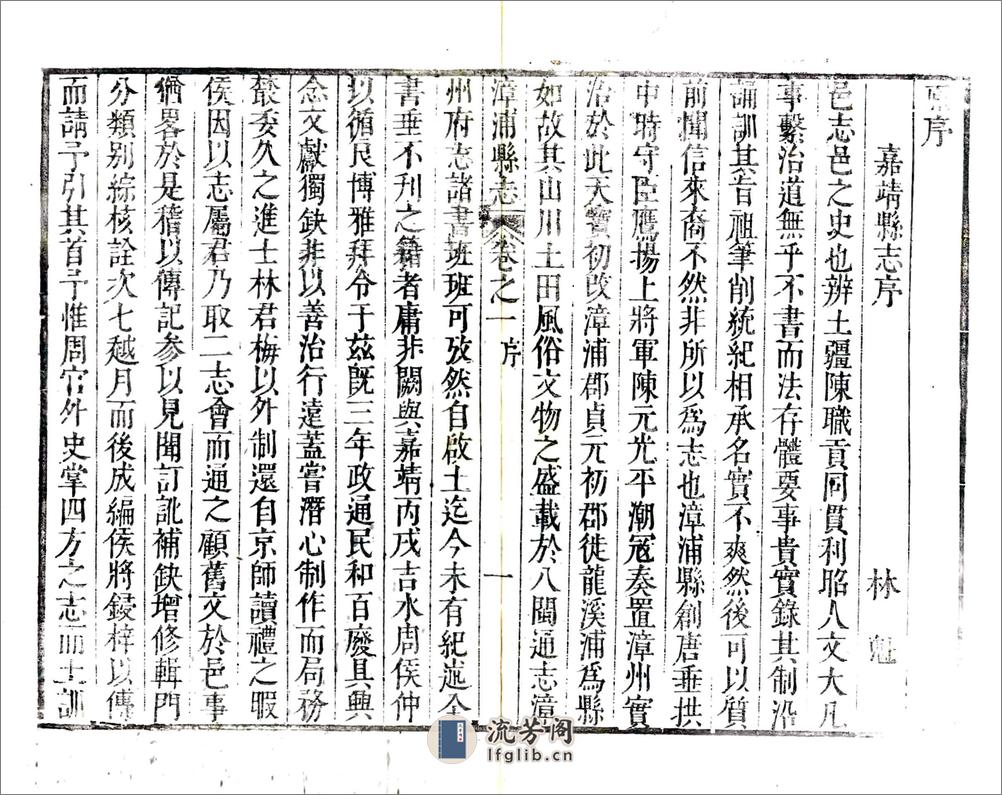 原序
嘉靖縣志序
林魁
邑志邑之史也辨土疆陳職貢同貫利昭人文大凡
事繫治道無乎不書而法存體要事貴實錄其制沿
誦訓其旨祖筆削統紀相承名實不爽然後可以質
前聞信來裔不然非所以爲志也漳浦縣創唐垂拱
中時守臣鷹揚上將軍陳元光平潮寇奏置漳州實
治於此天寶初改漳浦郡貞元初郡徙龍溪浦爲縣
如故其山川土田風俗文物之盛載於八閩通志漳
漳浦縣志 卷之一 序 一
州府志諸書班班可攷然自啟土迄今未有紀述全
書垂不刊之籍者庸非闕與嘉靖丙戌吉水周侯仲
以循良博雅拜令于兹旣三年政通民和百廢具興
念文獻獨缺非以善治行遠蓋嘗潛心制作而局務
叢委久之進士林君梅以外制還自京師讀禮之暇
侯因以志屬君乃取二志會而通之顧舊文於邑事
猶畧於是稽以傳記參以見聞訂訛補缺增修輯門
分類别綜核詮次七越月而後成編侯將鋟梓以傳
而請予引其首予惟周官外史掌四方之志而土訓
流芳阁
lfglib.cn